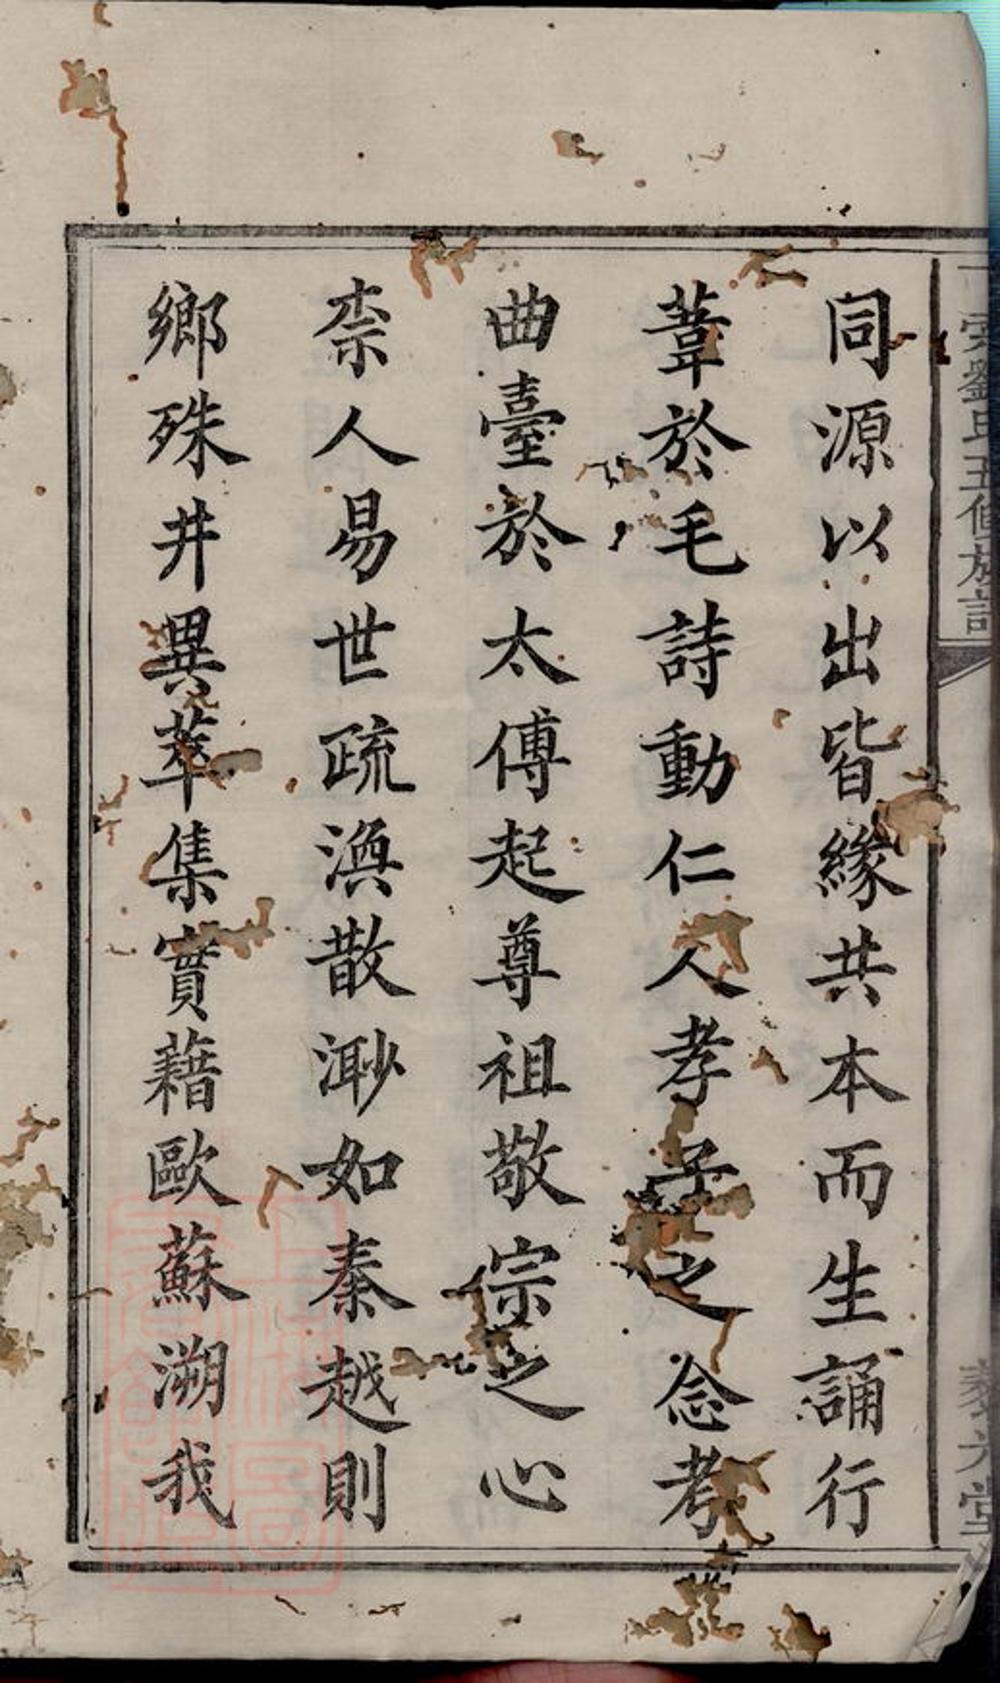 同源以出皆緣共本而生誦行
葦於毛詩動仁人孝子之念考
曲臺於太傅起尊祖敬宗之心
柰人易世疏渙散渺如秦越則
鄉殊井異萃集實藉歐蘇溯我
劉氏五修族譜
堂